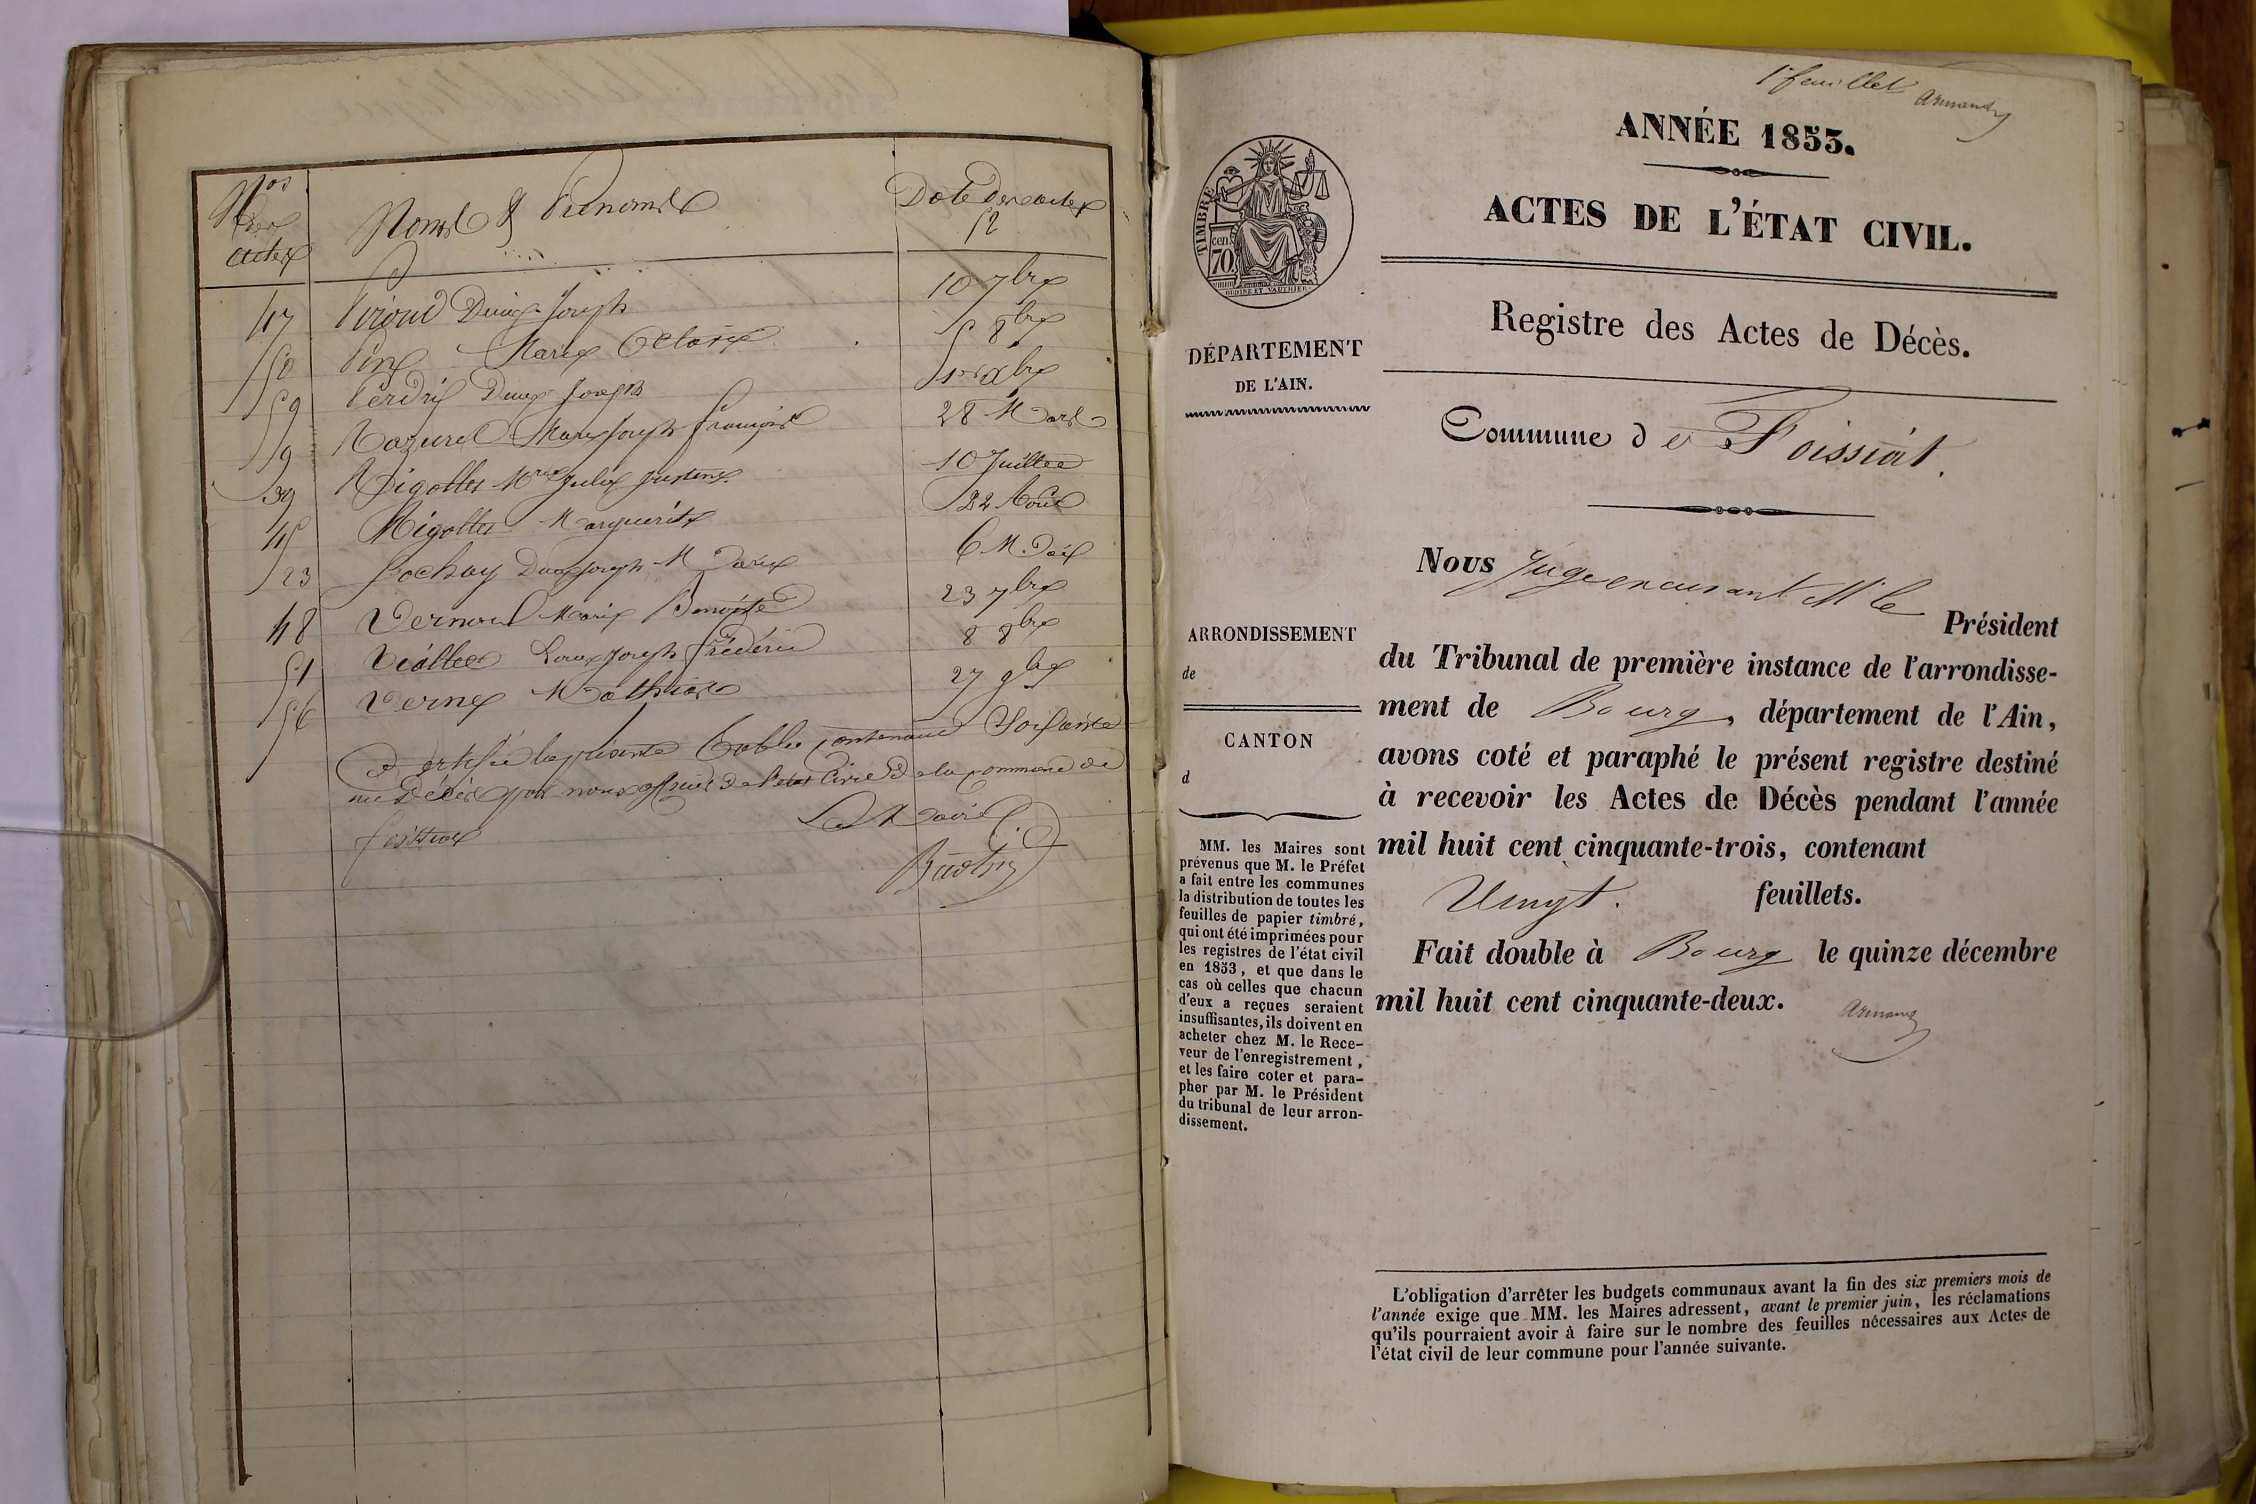 Nos
des
actes
Noms & Prénoms
Date des actes
52
47 Piroud Denis Joseph 10 7bre
50 Marie 5 8bre
59 Perdrix Joseph 1er Xbre
9 Mazuret Marie Joseph François 28 Mars
39 Rigottet Mie Julie 10 Juillet
45 Rigottet Marguerite 22 Août
23 Sochay Joseph Marie 6 Mai
48 Vernoux Marie Benoite 23 7bre
51 Viallet Joseph Frédéric 8 8bre
56 Verne Mathias 27 9bre
Certifié la présente Table contenant Soixante
décès par nous officier de l'état Civil de la commune de
Foissiat
Le Maire
1er feuillet Armand
ANNÉE 1853.
ACTES DE L'ÉTAT CIVIL.
TIMBRE
cen.
70
OUDINÉ ET VAUTHIER
Registre des Actes de Décès.
DÉPARTEMENT
DE L'AIN.
Commune de Foissiat.
Nous Juge en cursant M le
Président
ARRONDISSEMENT
de
CANTON
d
du Tribunal de première instance de l'arrondisse-
ment de Bourg, département de l'Ain,
avons coté et paraphé le présent registre destiné
à recevoir les Actes de Décès pendant l'année
mil huit cent cinquante-trois, contenant
Vingt. feuillets.
Fait double à Bourg le quinze décembre
mil huit cent cinquante-deux.
Armand
MM. les Maires sont
prévenus que M. le Préfet
a fait entre les communes
la distribution de toutes les
feuilles de papier timbré,
qui ont été imprimées pour
les registres de l'état civil
en 1853, et que dans le
cas où celles que chacun
d'eux a reçues seraient
insuffisantes, ils doivent en
acheter chez M. le Rece-
veur de l'enregistrement,
et les faire coter et para-
pher par M. le Président
du tribunal de leur arron-
dissement.
L'obligation d'arrêter les budgets communaux avant la fin des six premiers mois de
l'année exige que MM. les Maires adressent, avant le premier juin, les réclamations
qu'ils pourraient avoir à faire sur le nombre des feuilles nécessaires aux Actes de
l'état civil de leur commune pour l'année suivante.